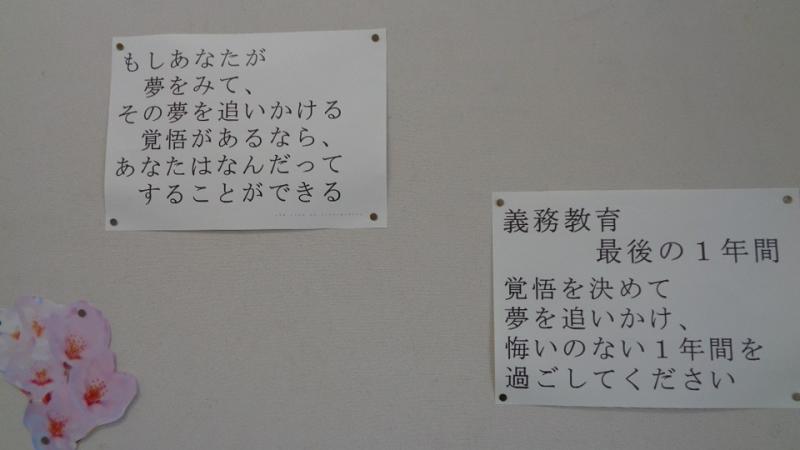 もしあなたが
夢をみて、
その夢を追いかける
覚悟があるなら、
あなたはなんだって
することができる
義務教育
最後の１年間
覚悟を決めて
夢を追いかけ、
悔いのない１年間を
過ごしてください